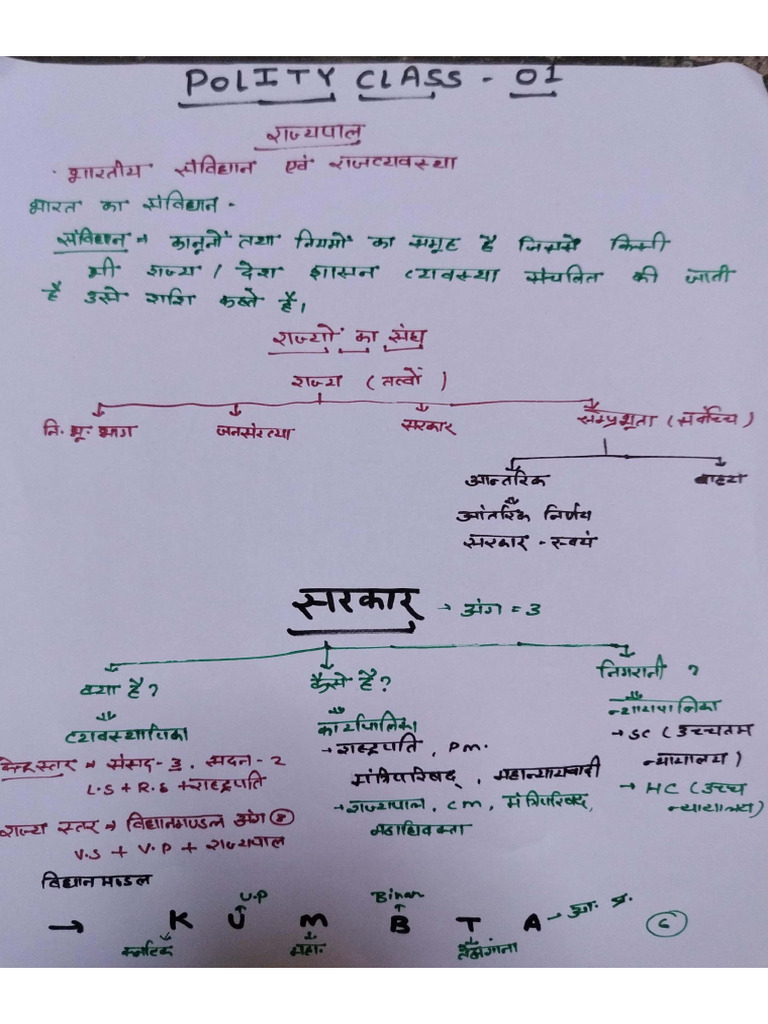 POLITY CLASS - 01
राज्यपाल
· भारतीय संविधान एवं राजव्यवस्था
भारत का संविधान -
संविधान ⇒ कानूनों तथा नियमों का समूह है जिससे किसी
भी राज्य / देश शासन व्यवस्था संचलित की जाती
है उसे राशि कहते है।
राज्यों का संघ
राज्य ( तत्वों )
नि. भू. भाग जनसंख्या सरकार सम्प्रभूता ( सर्वोच्च )
आन्तरिक बाह्य
आंतरिक निर्णय
सरकार - स्वयं
सरकार → अंग = 3
क्या है? कैसे है? निगरानी ?
व्यवस्थापिका कार्यपालिका न्यायपालिका
केन्द्र स्तर ⇒ संसद - 3, सदन - 2 → राष्ट्रपति, PM. → SC ( उच्चतम
L.S + R.S + राष्ट्रपति मंत्रिपरिषद्, महान्यायवादी न्यायालय )
राज्य स्तर ⇒ विधानमण्डल अंग 3 → राज्यपाल, CM, मंत्रिपरिषद्, → HC ( उच्च
V.S + V.P + राज्यपाल महाधिवक्ता न्यायालय )
विधानमण्डल
U.P Bihar
→ K U M B T A → आ. प्र. 6
कर्नाटक महा. तेलंगाना